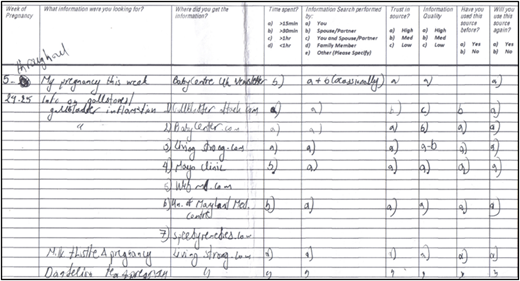 Week of Pregnancy What information were you looking for? Where did you get the information? Time spent? Information Search performed by: Trust in source? Information Quality Have you used this source before? Will you use this source again?
a) >15min a) You
b) >30min b) Spouse/Partner a) High a) High
c) >1hr c) You and Spouse/Partner b) Med b) Med a) Yes a) Yes
d) <1hr d) Family Member c) Low c) Low b) No b) No
e) Other (Please Specify)
throughout
5- My pregnancy this week BabyCentre Uk newsletter b) a + b (occasionally) a a) a) a)
24-25 info on gallstones/
gallbladder inflammation a) a) b) c) b a)
" 2) BabyCenter.com a) a) a) b) a) a)
3) living strong.com a) a) a) a-b a) a)
4) Mayo clinic b) a) a) a) a) a)
5) Web md.com
6) Un. of Maryland Med. b) a) a) a) a) a)
centre
7) speedyremedies.com
Milk thistle & pregnancy living strong.com a) a) a) a) a)
Dandelion & pregnancy "